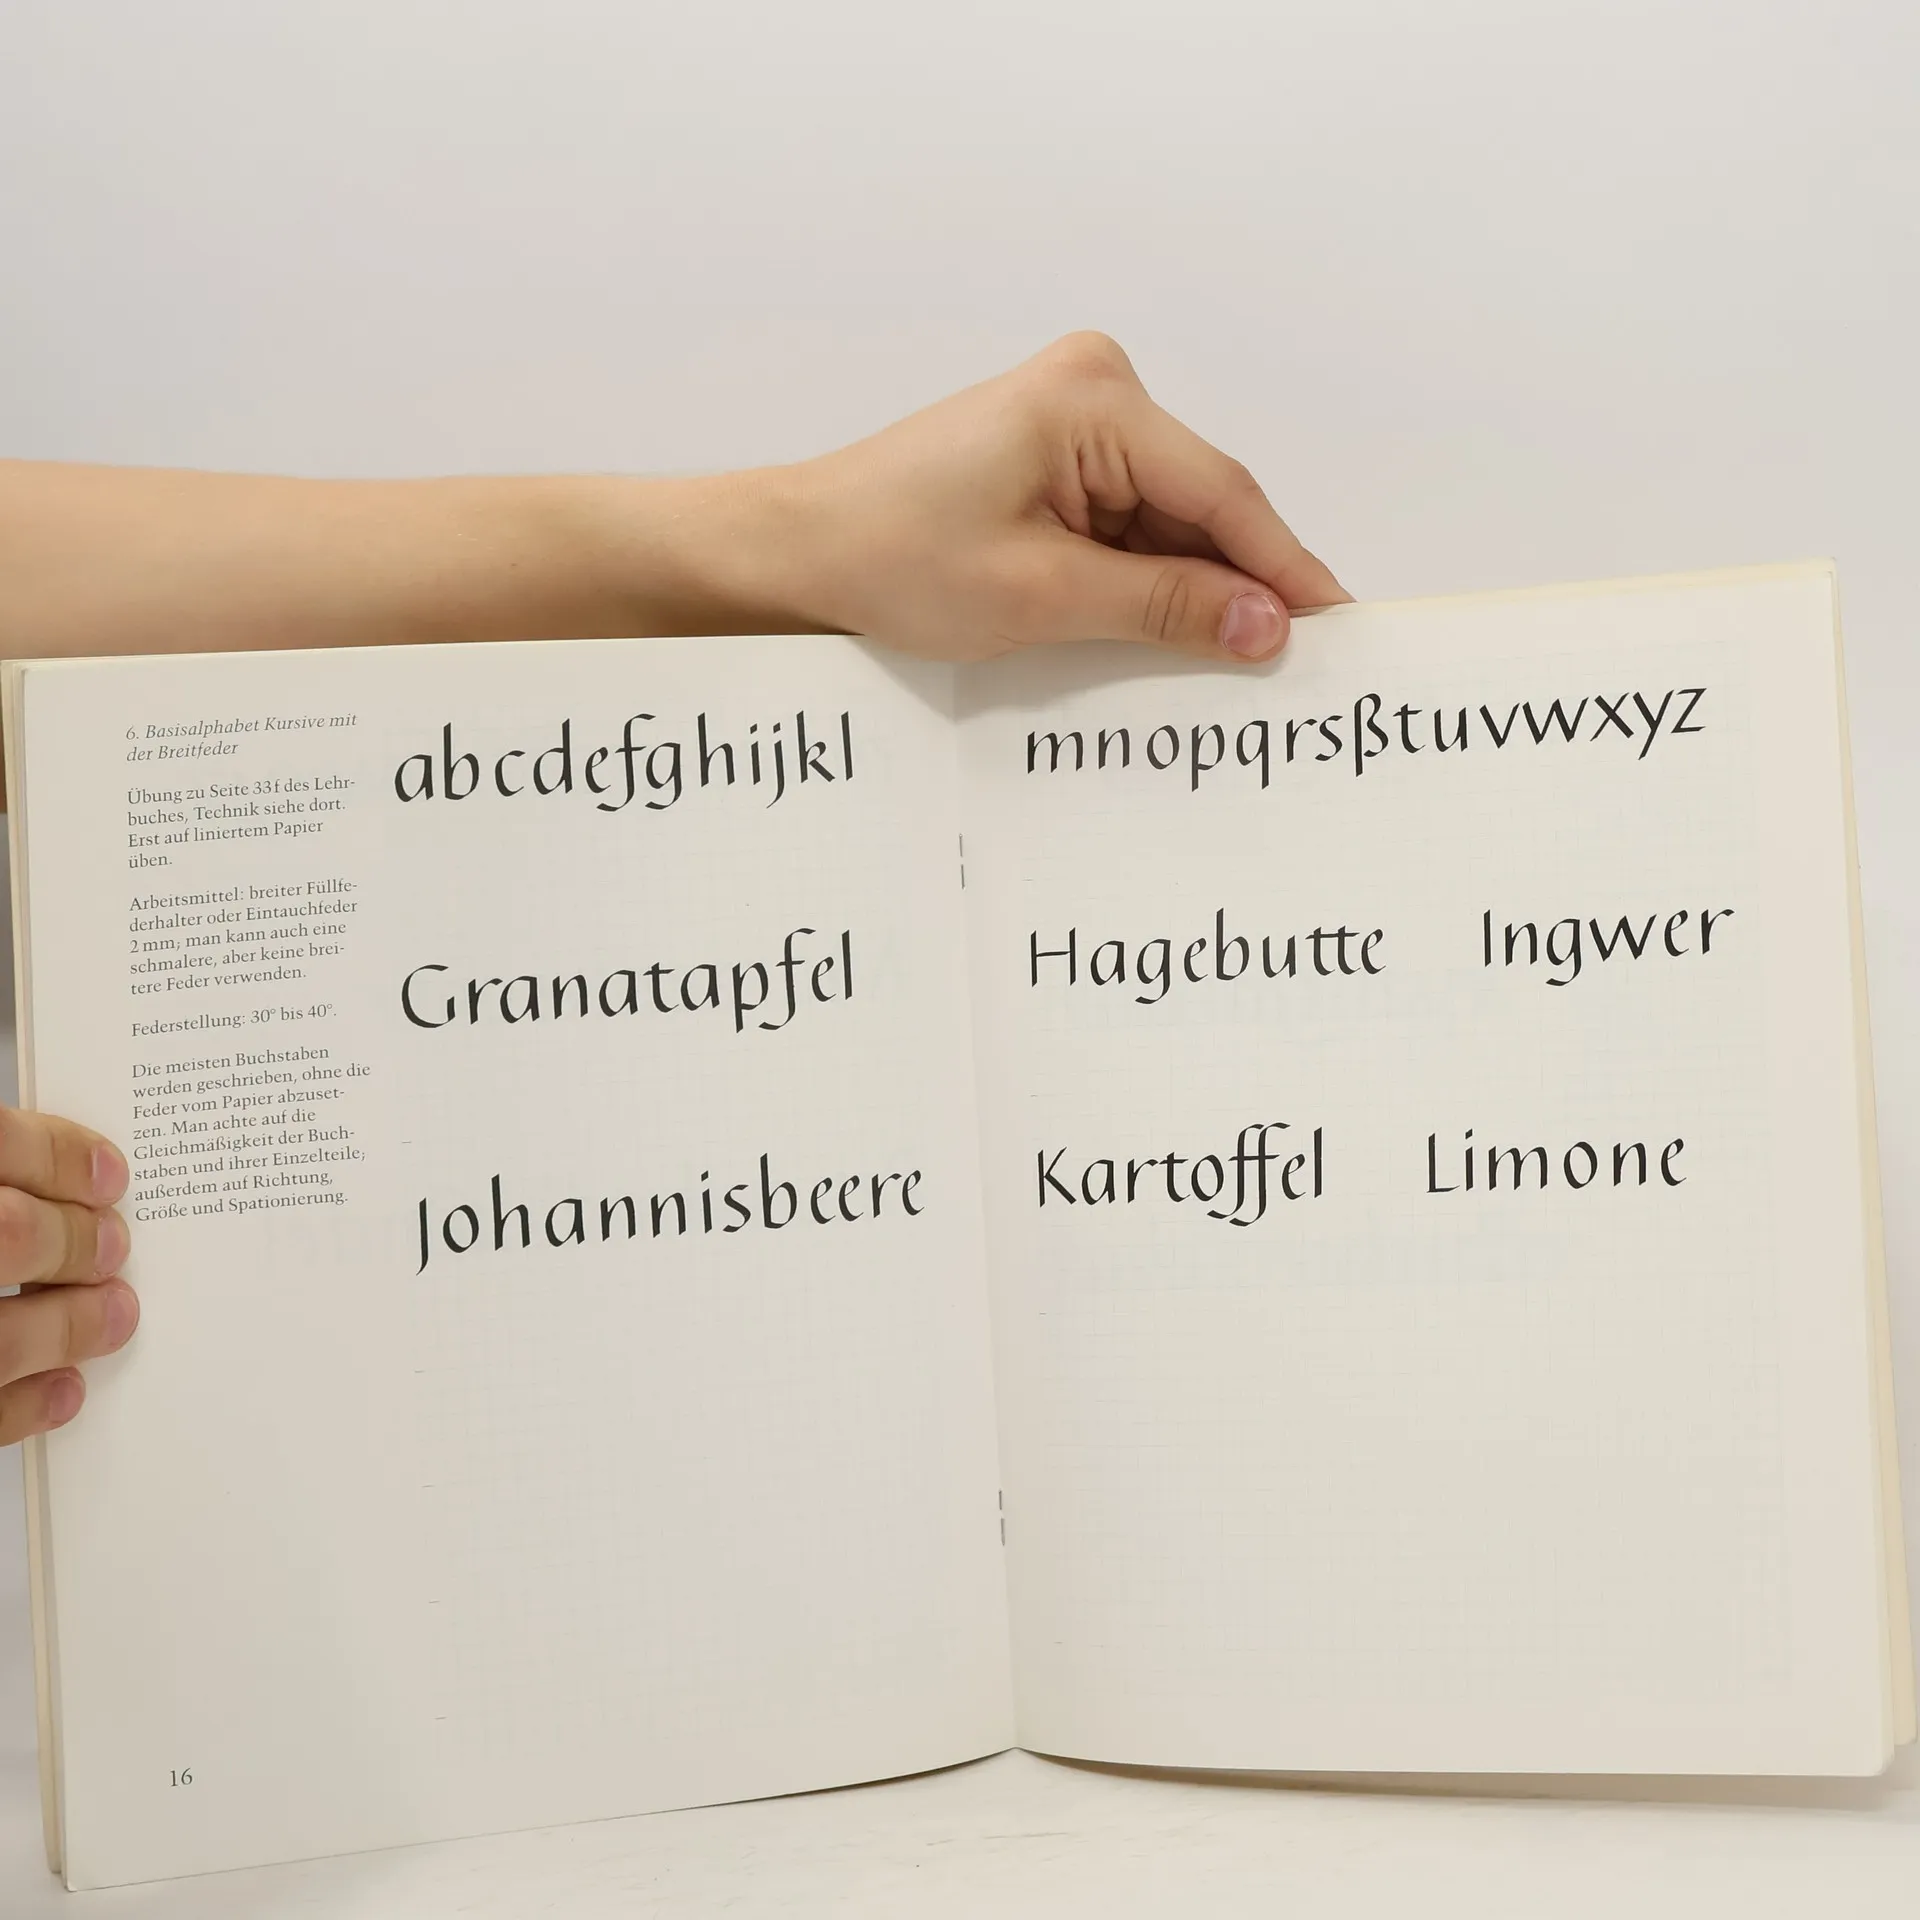 6. Basisalphabet Kursive mit
der Breitfeder
Übung zu Seite 33f des Lehr-
buches, Technik siehe dort.
Erst auf liniertem Papier
üben.
Arbeitsmittel: breiter Füllfe-
derhalter oder Eintauchfeder
2 mm; man kann auch eine
schmalere, aber keine brei-
tere Feder verwenden.
Federstellung: 30° bis 40°.
Die meisten Buchstaben
werden geschrieben, ohne die
Feder vom Papier abzuset-
zen. Man achte auf die
Gleichmäßigkeit der Buch-
staben und ihrer Einzelteile;
außerdem auf Richtung,
Größe und Spationierung.
abcdefghijkl
Granatapfel
Johannisbeere
16
mnopqrsßtuvwxyz
Hagebutte Ingwer
Kartoffel Limone